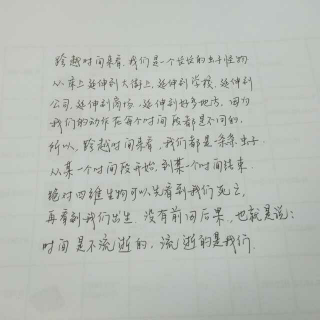 跨越时间来看,我们是一个长长的虫子怪物
从床上延伸到大街上,延伸到学校,延伸到
公司,延伸到商场,延伸到好多地方,因为
我们的动作在每个时间段都是不同的.
所以,跨越时间来看,我们都是一条条虫子
从某一个时间段开始,到某一个时间结束
绝对四维生物可以先看到我们死亡,
再看到我们出生,没有前因后果,也就是说:
时间是不流逝的,流逝的是我们.